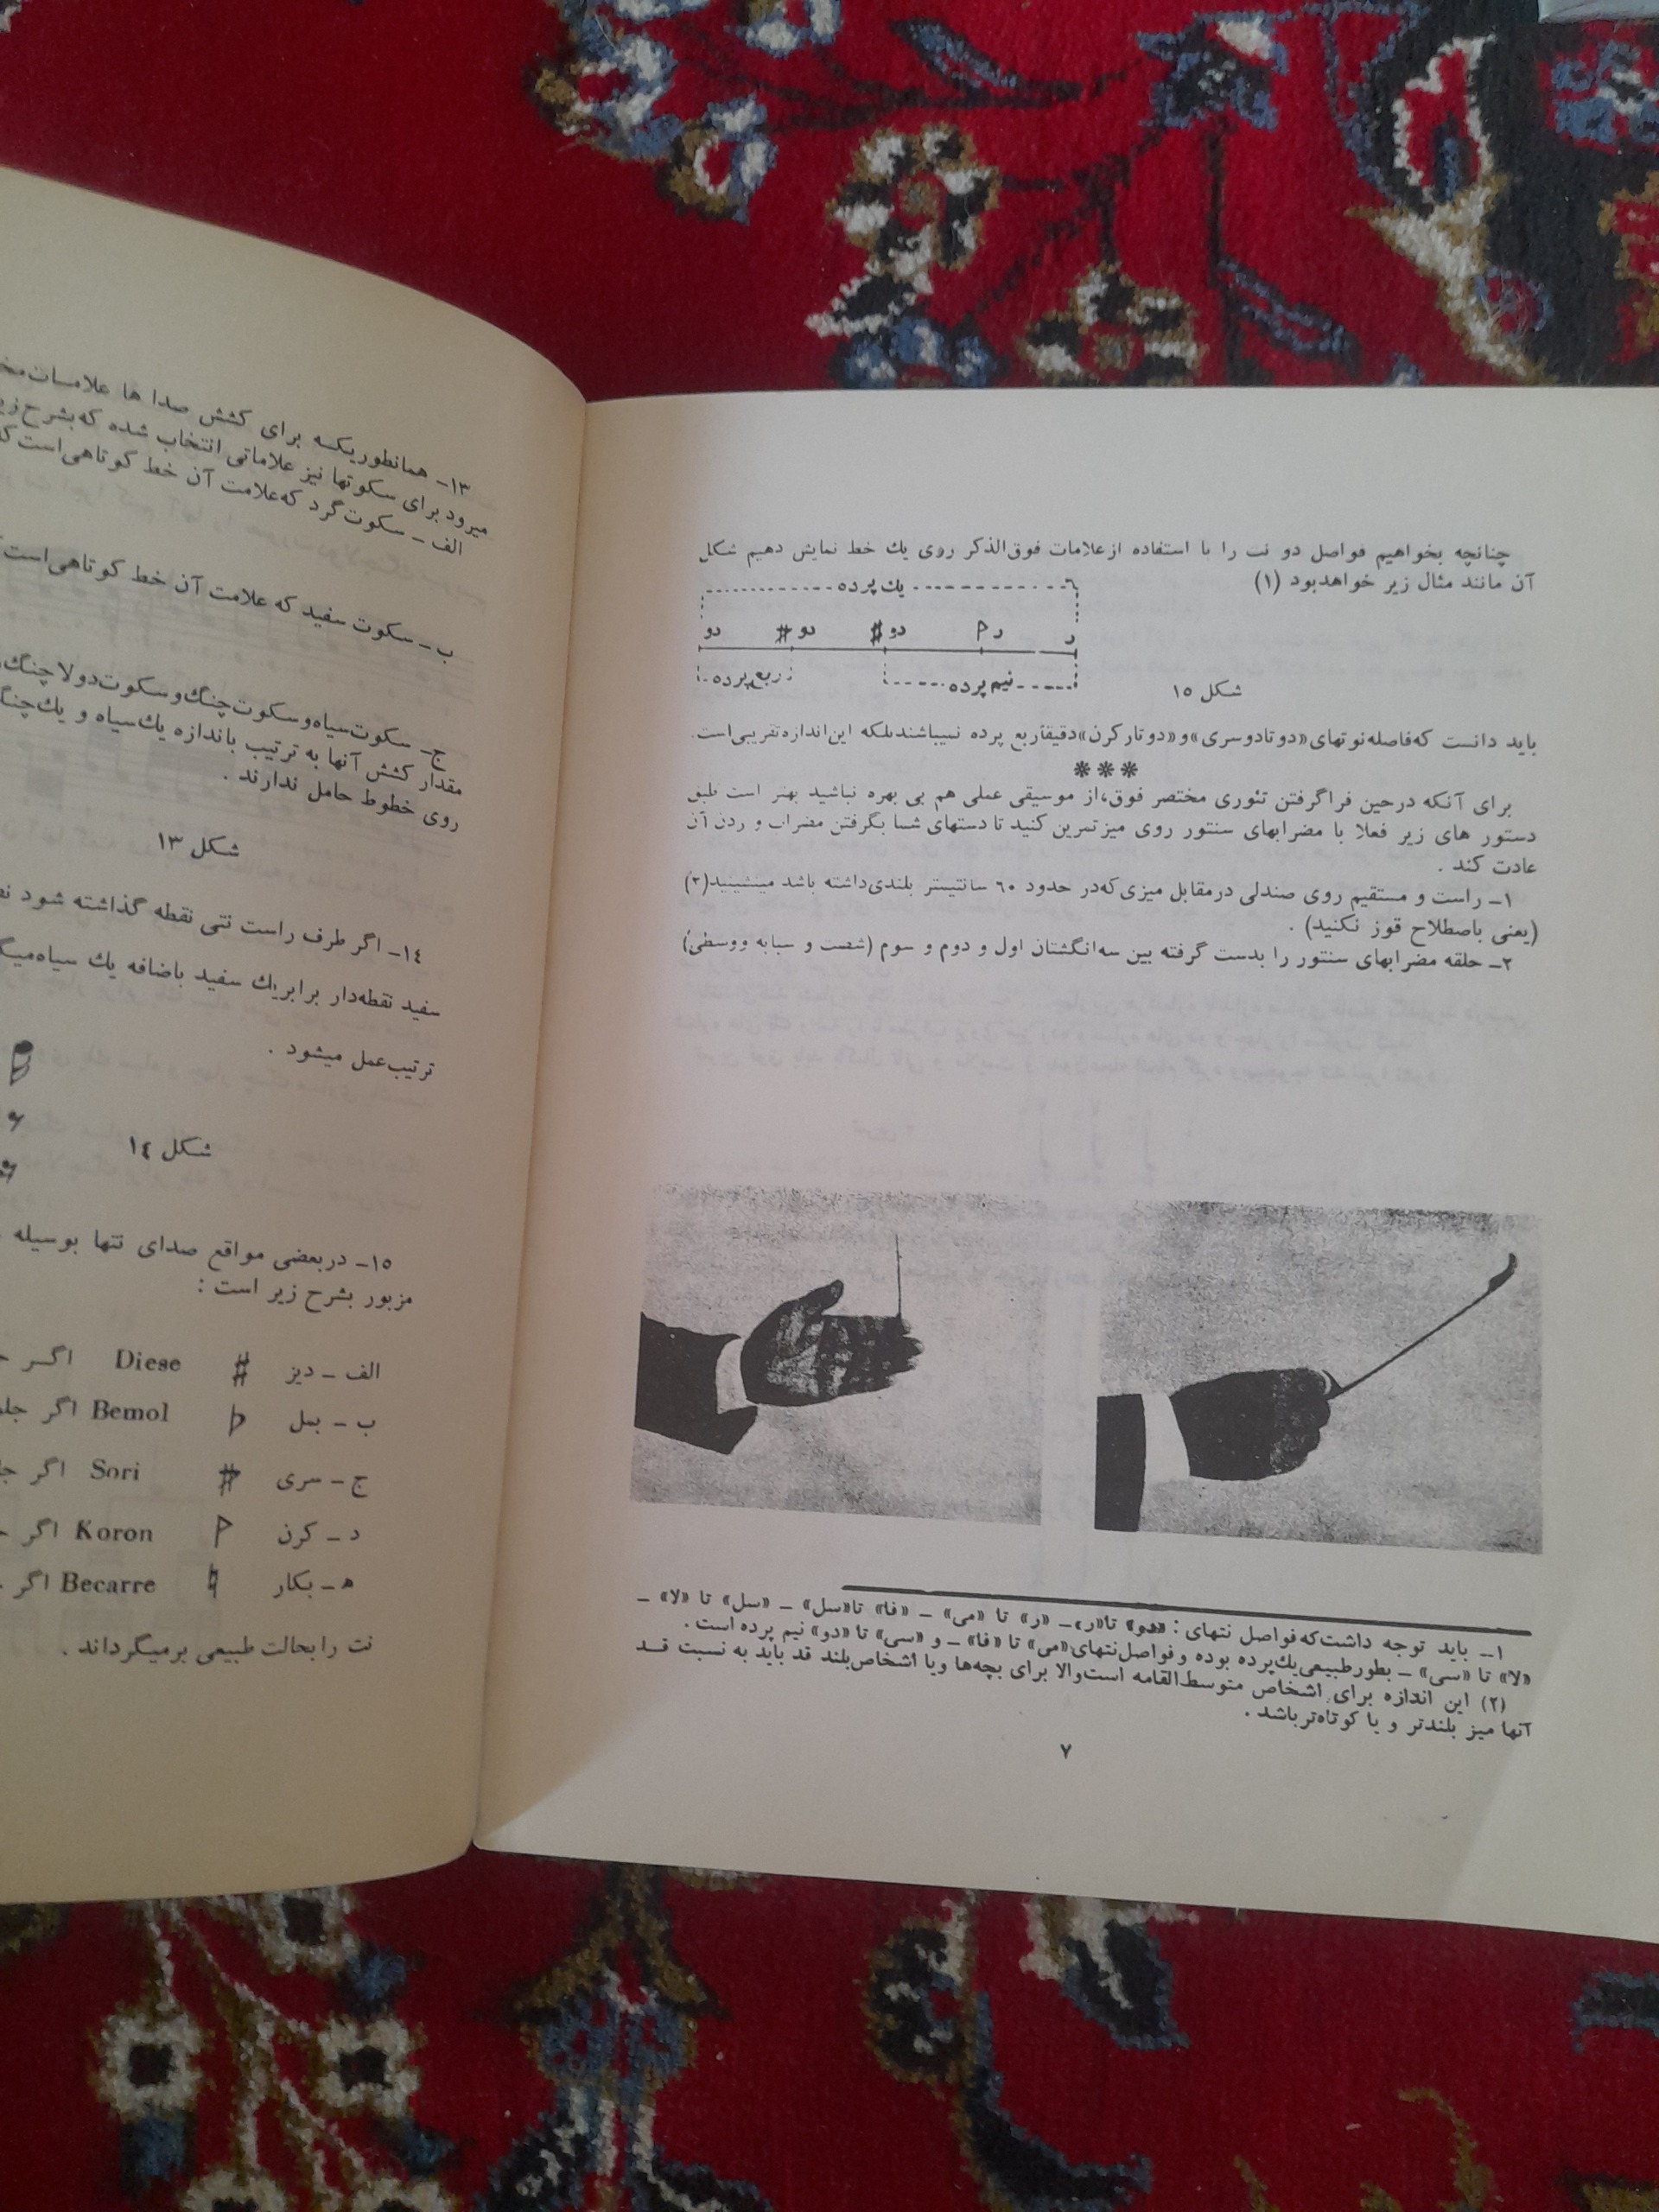 چنانچه بخواهیم فواصل دو نت را با استفاده از علامات فوق‌الذکر روی یك خط نمایش دهیم شکل
آن مانند مثال زیر خواهد بود (۱)
یك پرده
دو دو # دو # ر ر
ربع پرده نیم پرده
شکل ۱۵
باید دانست که فاصله نوتهای «دو تا دو سری» و «دو تا رکرن» دقیقاً ربع پرده نمیباشند بلکه این اندازه تقریبی است.
***
برای آنکه درحین فراگرفتن تئوری مختصر فوق، از موسیقی عملی هم بی بهره نباشید بهتر است طبق
دستور های زیر فعلا با مضرابهای سنتور روی میز تمرین کنید تا دستهای شما بگرفتن مضراب و زدن آن
عادت کند .
۱ـ راست و مستقیم روی صندلی درمقابل میزی که در حدود ۶۰ سانتیمتر بلندی داشته باشد مینشینید (۲)
(یعنی باصطلاح قوز نکنید) .
۲ـ حلقه مضرابهای سنتور را بدست گرفته بین سه انگشتان اول و دوم و سوم (شست و سبابه و وسطی)
۱ـ باید توجه داشت که فواصل نتهای : «دو» تا «ر» ـ «ر» تا «می» ـ «فا» تا «سل» ـ «سل» تا «لا» ـ
«لا» تا «سی» ـ بطور طبیعی یك پرده بوده و فواصل نتهای «می» تا «فا» ـ و «سی» تا «دو» نیم پرده است .
(۲) این اندازه برای اشخاص متوسط‌القامه است والا برای بچه‌ها ویا اشخاص بلند قد باید به نسبت قد
آنها میز بلندتر و یا کوتاه‌تر باشد .
۷
۱۳ـ همانطوریکه برای کشش صدا ها علامات
میرود برای سکوتها نیز علاماتی انتخاب شده که بشرح
الف ـ سکوت گرد که علامت آن خط کوتاهی است
ب ـ سکوت سفید که علامت آن خط کوتاهی است
ج ـ سکوت سیاه و سکوت چنگ و سکوت دولا چنگ
مقدار کشش آنها به ترتیب باندازه یك سیاه و یك چنگ
روی خطوط حامل ندارند .
شکل ۱۳
۱۴ـ اگر طرف راست نتی نقطه گذاشته شود
سفید نقطه‌دار برابر یك سفید باضافه یك سیاه
ترتیب عمل میشود .
شکل ۱۴
۱۵ـ دربعضی مواقع صدای نتها بوسیله
مزبور بشرح زیر است :
الف ـ دیز # Diese اگر
ب ـ بمل ♭ Bemol اگر
ج ـ سری Sori اگر
د ـ کرن Koron اگر
ه ـ بکار ♮ Becarre اگر
نت را بحالت طبیعی برمیگرداند .